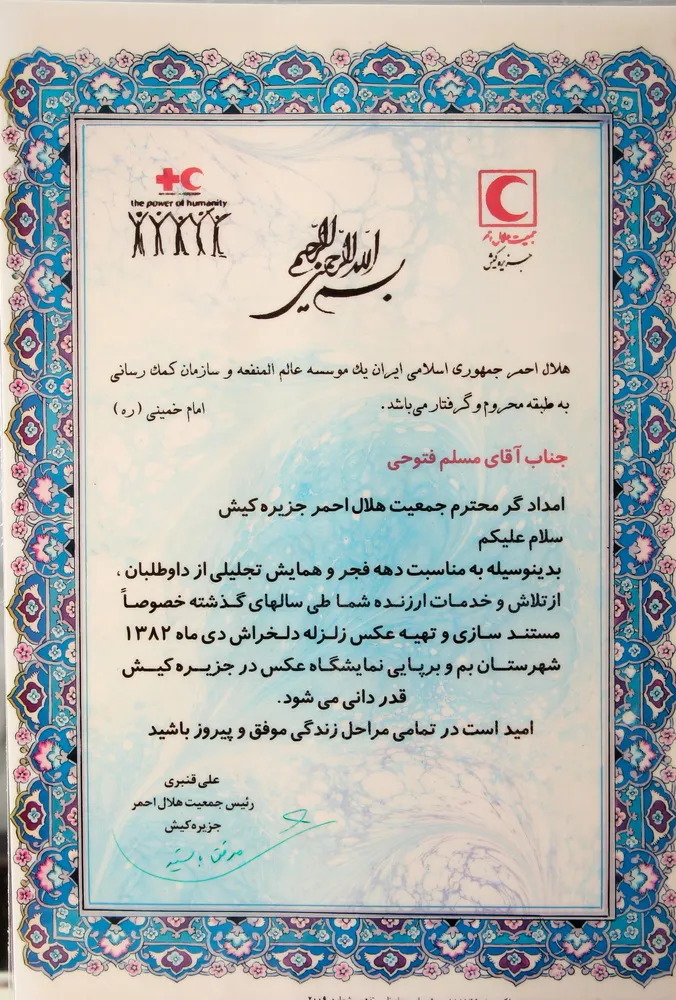 the power of humanity
جمعیت هلال احمر
جزیره کیش
بسم الله الرحمن الرحیم
هلال احمر جمهوری اسلامی ایران یك موسسه عالم المنفعه و سازمان کمك رسانی
به طبقه محروم و گرفتار می‌باشد. امام خمینی (ره)
جناب آقای مسلم فتوحی
امداد گر محترم جمعیت هلال احمر جزیره کیش
سلام علیکم
بدینوسیله به مناسبت دهه فجر و همایش تجلیلی از داوطلبان ،
از تلاش و خدمات ارزنده شما طی سالهای گذشته خصوصاً
مستند سازی و تهیه عکس زلزله دلخراش دی ماه ۱۳۸۲
شهرستان بم و برپایی نمایشگاه عکس در جزیره کیش
قدر دانی می شود.
امید است در تمامی مراحل زندگی موفق و پیروز باشید
علی قنبری
رئیس جمعیت هلال احمر
جزیره کیش
موفق باشید